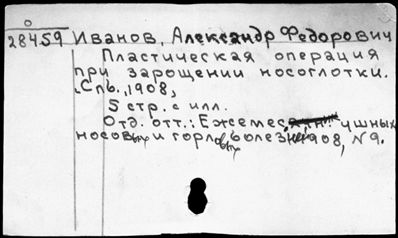 0
28459 Иванов, Александр Федорович
Пластическая операция
при зарощении носоглотки.
Спб., 1908,
5 стр. с илл.
Отд. отт.: Ежемес. ушных
носовых и горловых болезн. 1908, N 9.